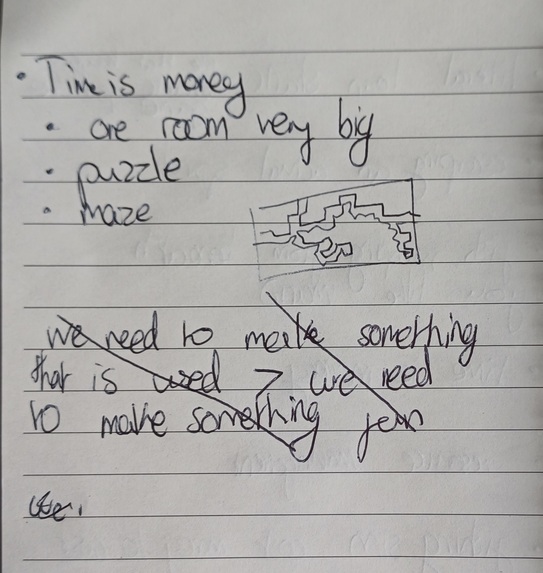 • Time is money
• one room very big
• puzzle
• maze
we need to make something
that is used > we need
to make something